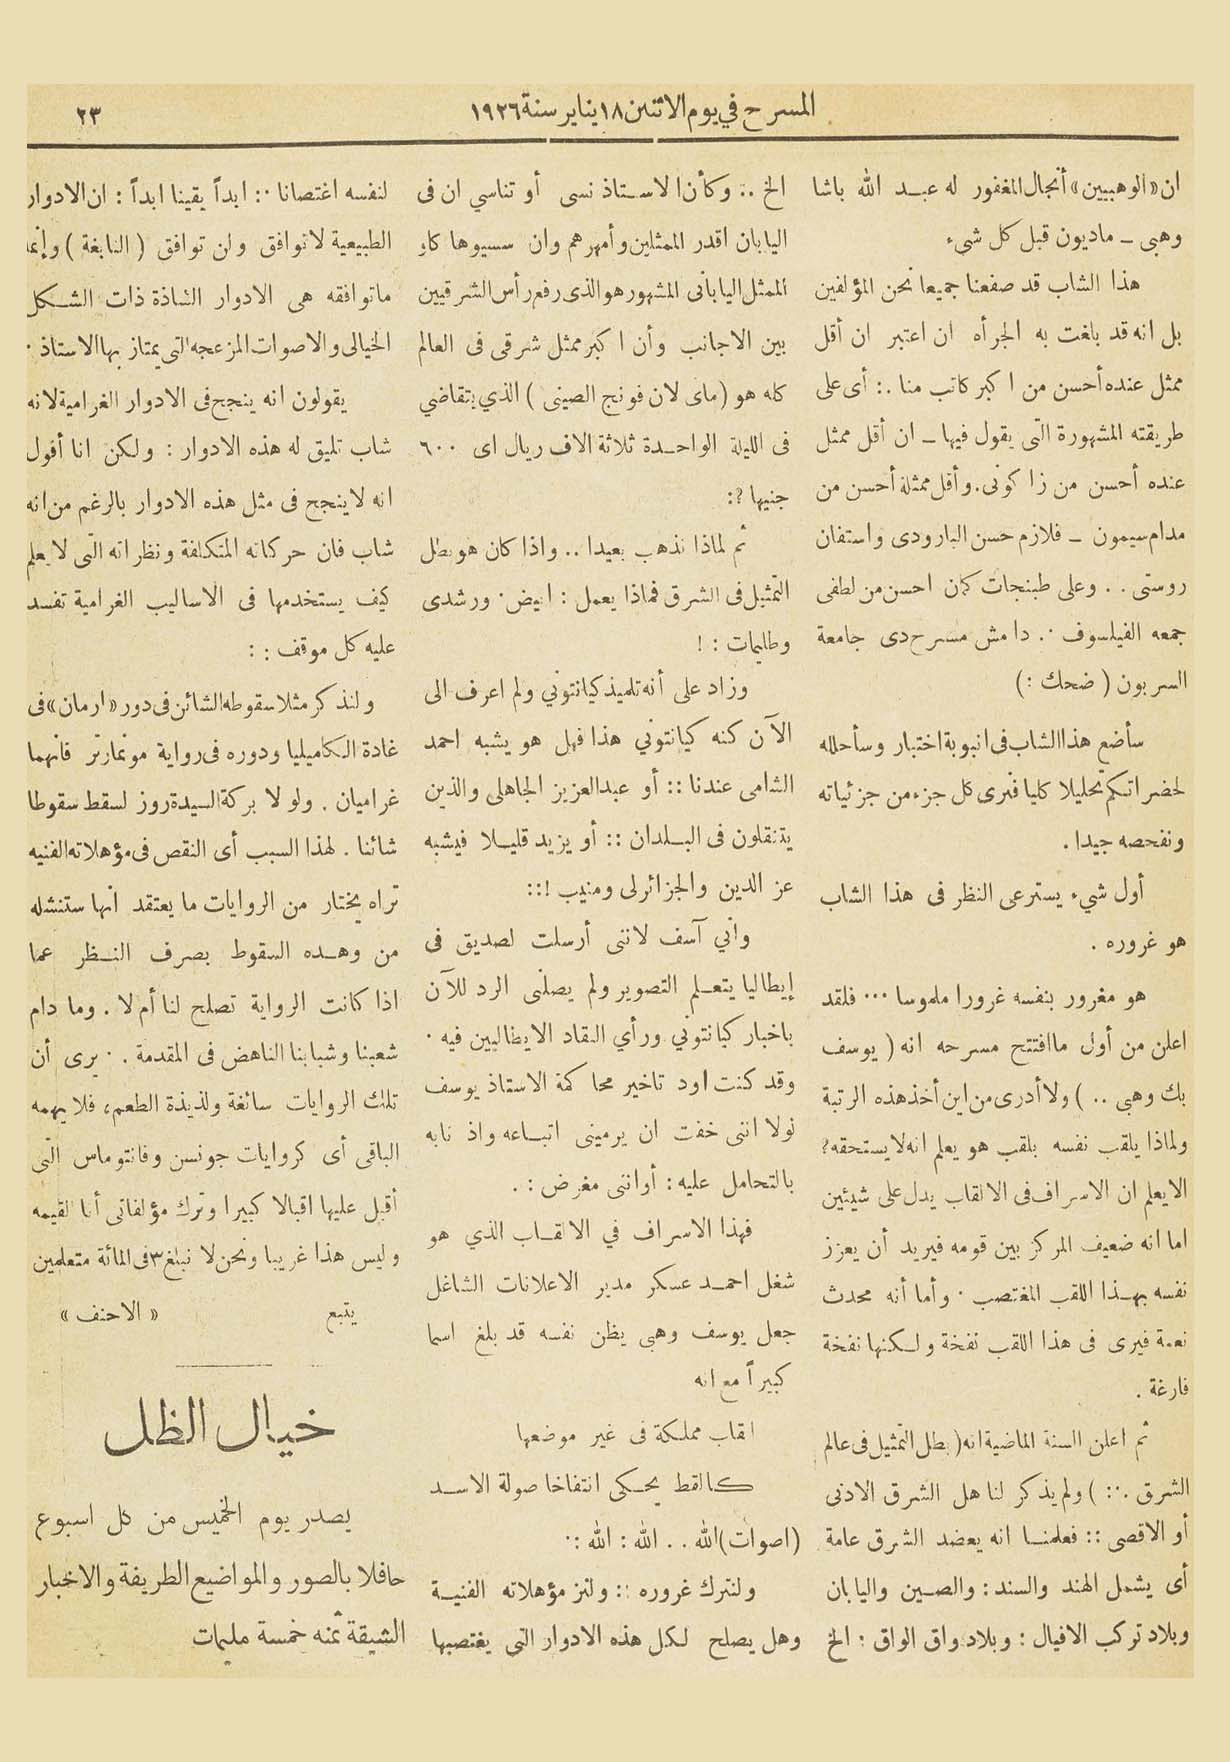 المسرح في يوم الاثنين ١٨ يناير سنة ١٩٢٦
٢٣
ان «الوهبيين» أنجال المغفور له عبد الله باشا
وهبى ـ ماديون قبل كل شىء
هذا الشاب قد صفعنا جميعا نحن المؤلفين
بل انه قد بلغت به الجرأه ان اعتبر ان أقل
ممثل عنده أحسن من اكبر كاتب منا .: أى على
طريقته المشهورة التى يقول فيها ـ ان أقل ممثل
عنده أحسن من زاكونى. وأقل ممثلة أحسن من
مدام سيمون ـ فلازم حسن البارودى واستفان
روستى . . وعلى طبنجات كمان احسن من لطفى
جمعه الفيلسوف .. دا مش مسرح دى جامعة
السربون ( ضحك : )
سأضع هذا الشاب فى انبوبة اختبار وسأحلله
لحضراتكم تحليلا كليا فنرى كل جزء من جزئياته
ونفحصه جيدا .
أول شيء يسترعى النظر فى هذا الشاب
هو غروره .
هو مغرور بنفسه غرورا ملموسا ... فلقد
اعلن من أول ما افتتح مسرحه انه ( يوسف
بك وهبى .. ) ولا أدرى من اين أخذ هذه الرتبة
ولماذا يلقب نفسه بلقب هو يعلم انه لا يستحقه؟
الا يعلم ان الاسراف فى الالقاب يدل على شيئين
اما انه ضعيف المركز بين قومه فيريد أن يعزز
نفسه بهذا اللقب المغتصب . وأما أنه محدث
نعمة فيرى فى هذا اللقب نفخة ولكنها نفخة
فارغة .
ثم اعلن السنة الماضية انه ( بطل التمثيل فى عالم
الشرق .:: ) ولم يذكر لنا هل الشرق الادنى
أو الاقصى :: فعلمنا انه يعضد الشرق عامة
أى يشمل الهند والسند : والصين واليابان
وبلاد تركب الافيال : وبلاد واق الواق : الخ
الخ .: وكأن الاستاذ نسى أو تناسي ان فى
اليابان اقدر الممثلين وأمهرهم وان سسيوها كاو
الممثل اليابانى المشهور هو الذى رفع رأس الشرقيين
بين الاجانب وأن اكبر ممثل شرقى فى العالم
كله هو ( ماى لان فونج الصينى ) الذي يتقاضي
فى الليلة الواحدة ثلاثة الاف ريال اى ٦٠٠
جنيها ?:
ثم لماذا نذهب بعيدا .. واذا كان هو بطل
التمثيل فى الشرق فماذا يعمل : ابيض . ورشدى
وطليمات : !
وزاد على أنه تلميذ كيانتوني ولم اعرف الى
الآن كنه كيانتوني هذا فهل هو يشبه احمد
الشامى عندنا :: أو عبد العزيز الجاهلى والذين
يتنقلون فى البلدان :: أو يزيد قليلا فيشبه
عز الدين والجزائرلى ومنيب !::
وأني آسف لاننى أرسلت لصديق فى
إيطاليا يتعلم التصوير ولم يصلنى الرد للآن
باخبار كيانتوني ورأي النقاد الايطاليين فيه .
وقد كنت اود تاخير محاكمة الاستاذ يوسف
لولا اننى خفت ان يرمينى اتباعه واذنابه
بالتحامل عليه : أو اننى مغرض : .
فهذا الاسراف في الالقاب الذي هو
شغل احمد عسكر مدير الاعلانات الشاغل
جعل يوسف وهبي يظن نفسه قد بلغ اسما
كبيراً مع انه
القاب مملكة فى غير موضعها
كالقط يحكى انتفاخا صولة الاسد
(اصوات) الله . . الله : الله :.
ولنترك غروره :: ولنر مؤهلاته الفنية
وهل يصلح لكل هذه الادوار التي يغتصبها
لنفسه اغتصابا :. ابداً يقينا ابداً : ان الادوار
الطبيعية لا توافق ولن توافق ( النابغة ) وإنما
ما توافقه هى الادوار الشاذة ذات الشكل
الخيالى والاصوات المزعجه التى يمتاز بها الاستاذ .
يقولون انه ينجح فى الادوار الغرامية لانه
شاب تليق له هذه الادوار : ولكن انا أقول
انه لا ينجح فى مثل هذه الادوار بالرغم من انه
شاب فان حركاته المتكلفة ونظراته التى لا يعلم
كيف يستخدمها فى الاساليب الغرامية تفسد
عليه كل موقف : :
ولنذكر مثلا سقوطه الشائن فى دور «ارمان» فى
غادة الكاميليا ودوره فى رواية مونمارتر فانهما
غراميان . ولولا بركة السيدة روز لسقط سقوطا
شائنا . لهذا السبب أى النقص فى مؤهلاته الفنيه
تراه يختار من الروايات ما يعتقد انها ستنشله
من وهده السقوط بصرف النظر عما
اذا كانت الرواية تصلح لنا أم لا . وما دام
شعبنا وشبابنا الناهض فى المقدمة . . يرى أن
تلك الروايات سائغة ولذيذة الطعم، فلا يهمه
الباقى أى كروايات جونسن وفانتوماس التى
أقبل عليها اقبالا كبيرا وترك مؤلفاتى أنا القيمه
وليس هذا غريبا ونحن لا نبلغ ٣ فى المائة متعلمين
يتبع « الاحنف »
خيال الظل
يصدر يوم الخميس من كل اسبوع
حافلا بالصور والمواضيع الطريفة والاخبار
الشيقة ثمنه خمسة مليمات